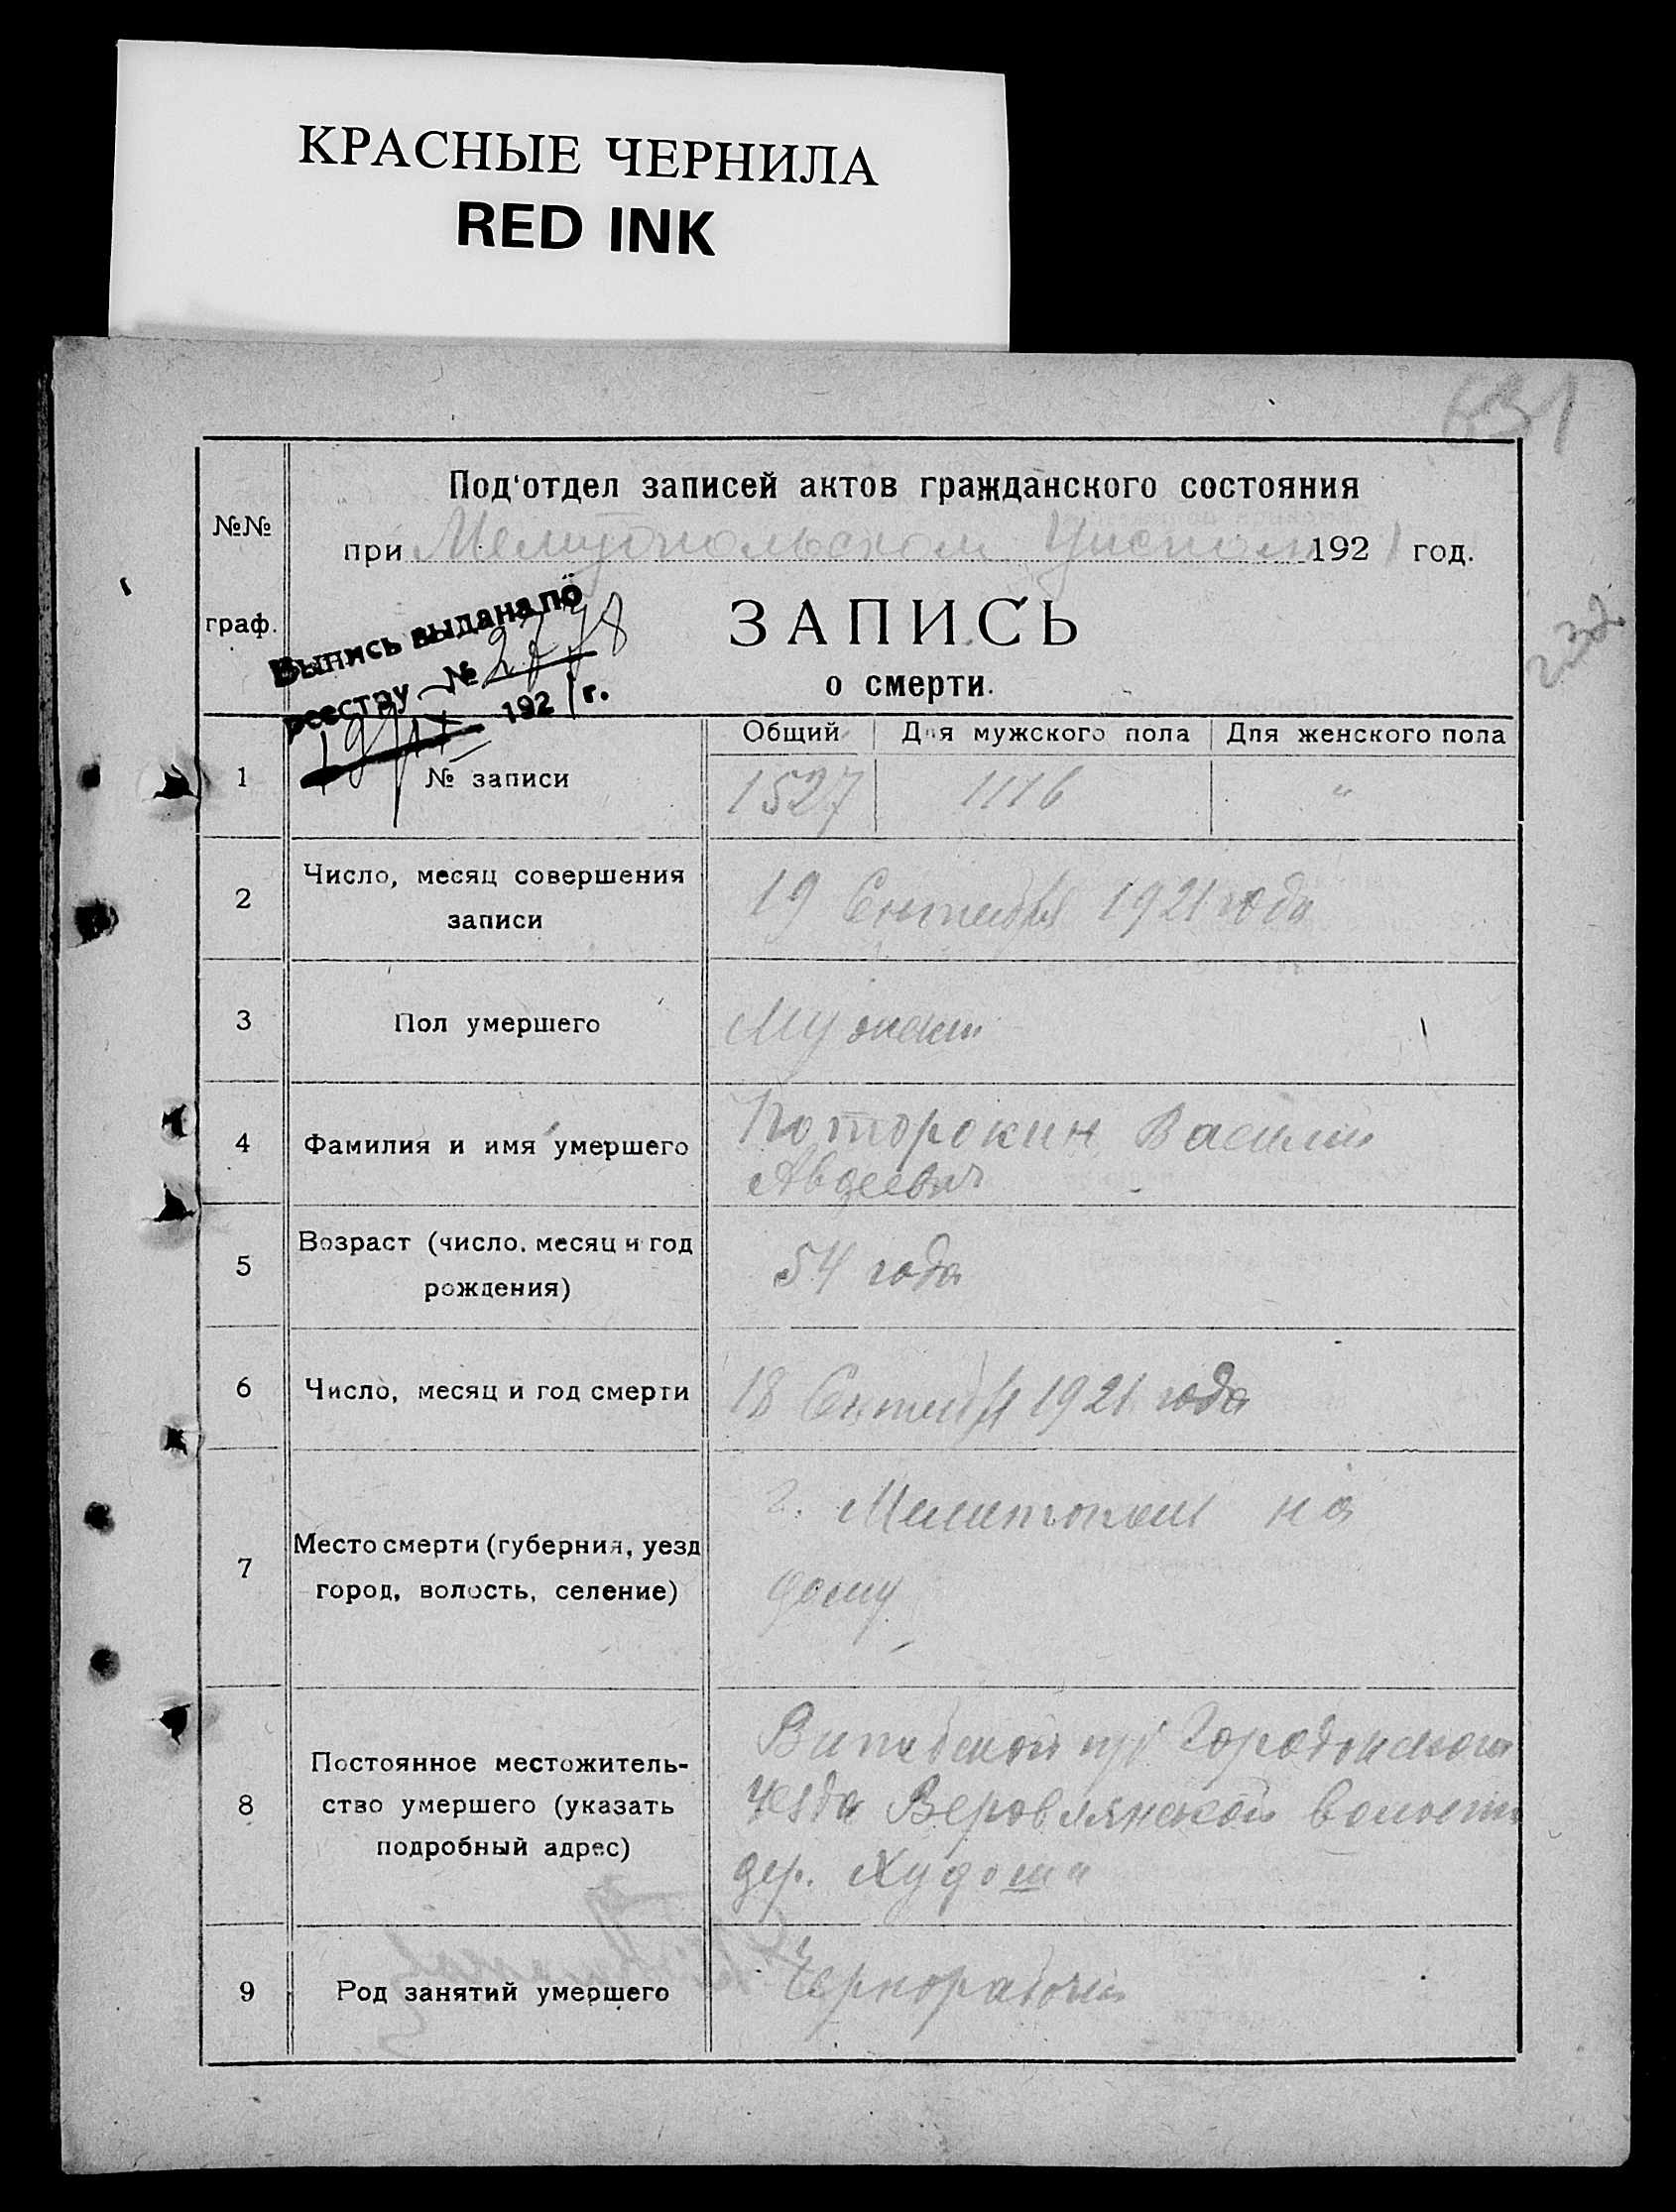 КРАСНЫЕ ЧЕРНИЛА
RED INK
631
Под'отдел записей актов гражданского состояния
№№ граф.
при Мелитопольском Уисполк 1921 год.
232
Выпись выдана по
реестру № 2778
19/IX 1921 г.
ЗАПИСЬ
о смерти.
Общий Для мужского пола Для женского пола
1 № записи 1527 1116 "
2 Число, месяц совершения
записи
19 Сентября 1921 года
3 Пол умершего Мужской
4 Фамилия и имя умершего
Поторокин Василий
Авдеевич
5 Возраст (число, месяц и год
рождения)
54 года
6 Число, месяц и год смерти 18 Сентября 1921 года
7 Место смерти (губерния, уезд
город, волость, селение)
г. Мелитополь на
дому
8 Постоянное местожитель-
ство умершего (указать
подробный адрес)
Витебской губ Городокского
уезда Веровлянской волости
дер.
9 Род занятий умершего Чернорабочий